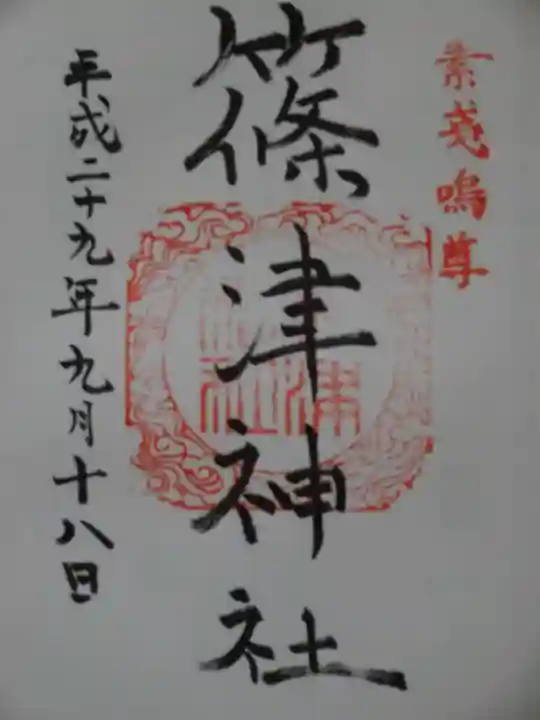 素戔嗚尊
篠津神社
平成二十九年九月十八日